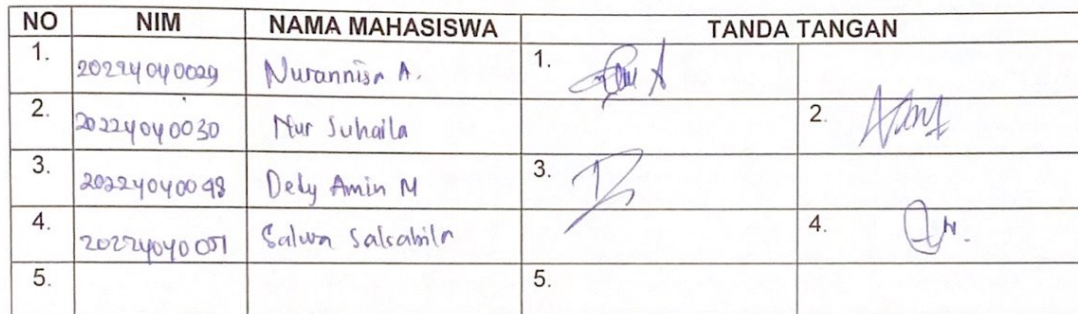 NO NIM NAMA MAHASISWA TANDA TANGAN
1. 20224040029 Nurannisa A. 1.
2. 20224040030 Nur Suhaila 2.
3. 20224040048 Dely Amin M 3.
4. 20224040051 Salwa Salsabila 4.
5. 5.